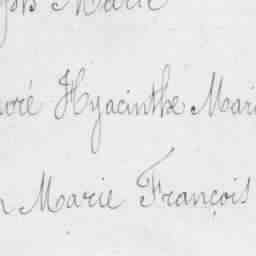 Marie
Hyacinthe Mari
Marie François